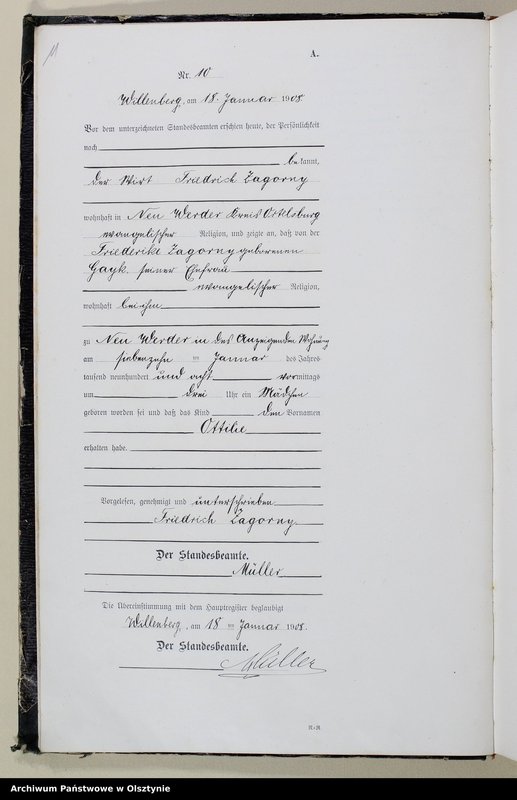 11
A.
Nr. 10
Willenberg, am 18. Januar 1908
Vor dem unterzeichneten Standesbeamten erschien heute, der Persönlichkeit
nach
bekannt,
der Wirt Friedrich Zagorny
wohnhaft in Neu Werder Kreis Ortelsburg
evangelischer Religion, und zeigte an, daß von der
Friederike Zagorny geborenen
Gayk, seiner Ehefrau
evangelischer Religion,
wohnhaft bei ihm
zu Neu Werder in des Anzeigenden Wohnung
am siebenzehn ten Januar des Jahres
tausend neunhundert und acht vormittags
um drei Uhr ein Mädchen
geboren worden sei und daß das Kind den Vornamen
Ottilie
erhalten habe.
Vorgelesen, genehmigt und unterschrieben
Friedrich Zagorny.
Der Standesbeamte.
Müller
Die Übereinstimmung mit dem Hauptregister beglaubigt
Willenberg, am 18 ten Januar 1908.
Der Standesbeamte.
Müller
Archiwum Państwowe w Olsztynie